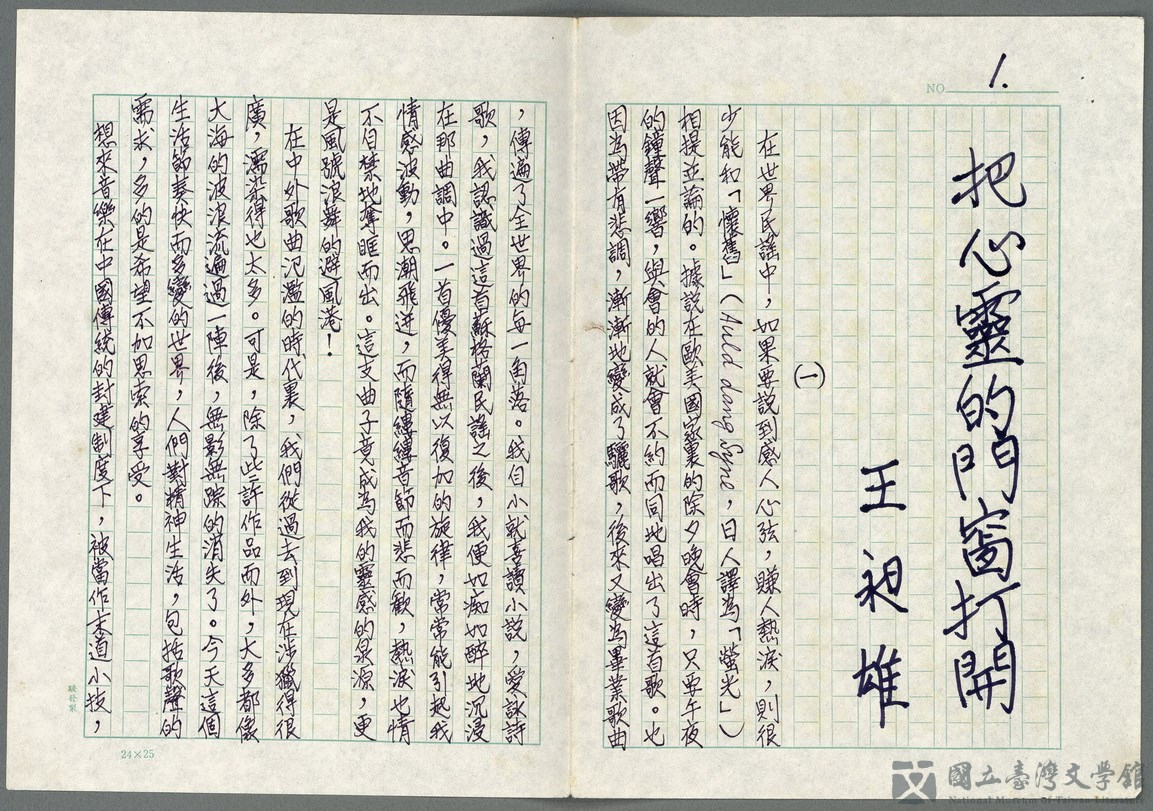 NO 1.
把心靈的門窗打開
王昶雄
(一)
在世界民謠中，如果要說到感人心弦，賺人熱淚，則很
少能和「懷舊」(Auld dong Syne，日人譯為「螢光」)
相提並論的。據說在歐美國家裏的除夕晚會時，只要午夜
的鐘聲一響，與會的人就會不約而同地唱出了這首歌。也
因為帶有悲調，漸漸地變成了驪歌，後來又變為畢業歌曲
，傳遍了全世界的每一角落。我自小就喜讀小說，愛詠詩
歌，我認識過這首蘇格蘭民謠之後，我便如痴如醉地沉浸
在那曲調中。一首優美得無以復加的旋律，常常能引起我
情感波動，思潮飛迸，而隨縷縷音節而悲而歡，熱淚也情
不自禁地奪眶而出。這支曲子竟成為我的靈感的泉源，更
是風號浪舞的避風港！
在中外歌曲氾濫的時代裏，我們從過去到現在涉獵得很
廣，濡染得也太多。可是，除了些許作品而外，大多都像
大海的波浪流遍過一陣後，無影無踪的消失了。今天這個
生活節奏快而多變的世界，人們對精神生活，包括歌聲的
需求，多的是希望不加思索的享受。
想來音樂在中國傳統的封建制度下，被當作末道小技，
24×25
國立臺灣文學館
National Museum of Taiwan Literature